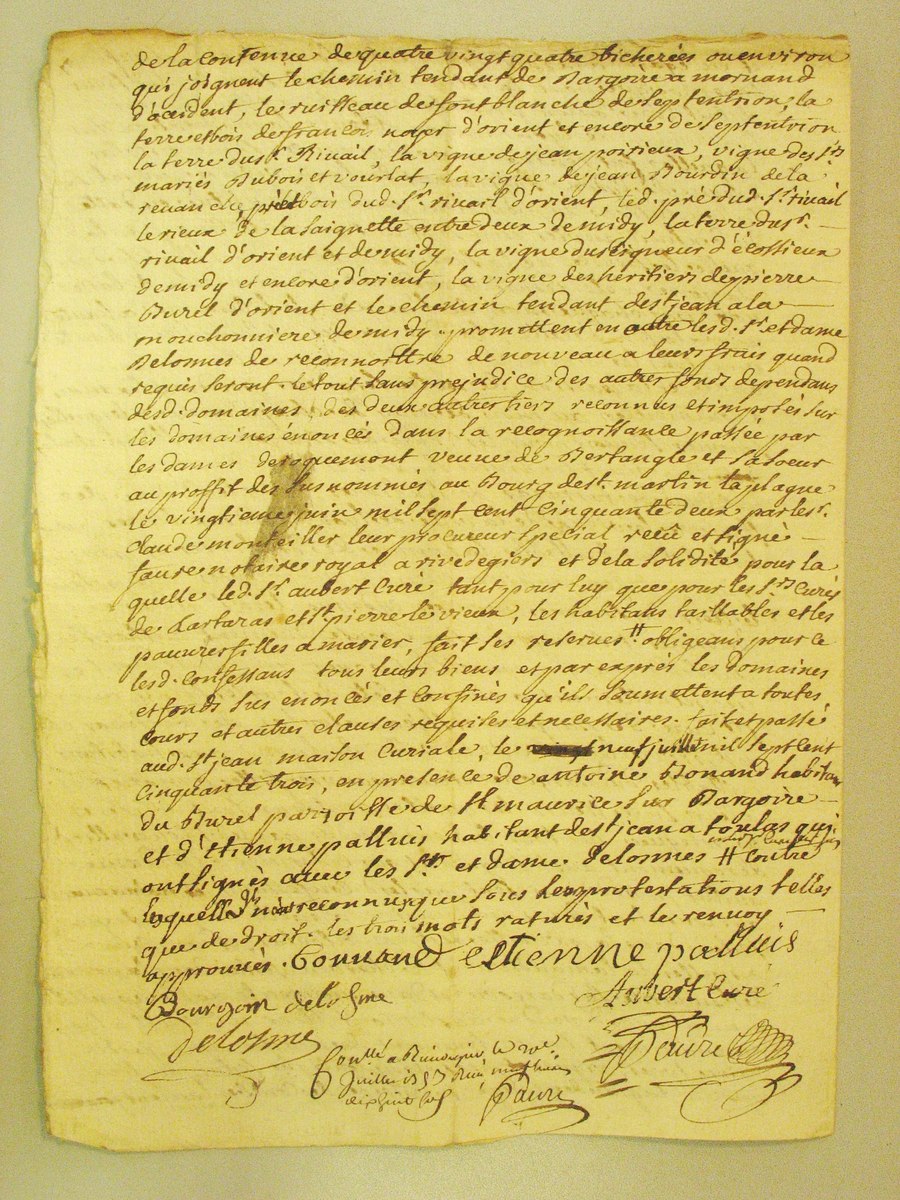 de la Contenue de quatre vingt quatre bicherées ou environ
qui joignent le chemin tendant de Bargoire a mornand
d'occident, le ruisseau de font blanche de septentrion, la
terre et bois de francois noyer d'orient et encore de septentrion
la terre du sr. Rivail, la vigne de jean poirieux, vigne des srs
mariés Dubois et vourlat, la vigne de jean Bourdin de la
revanche, pré et bois dud. sr. rivail d'orient, led. pré dud. sr. rivail
le rieux de la saignette entre deux de midy, la terre du sr.
rivail d'orient et de midy, la vigne du seigneur d'écossieux
de midy et encore d'orient, la vigne des héritiers de pierre
Burel d'orient et le chemin tendant de st jean a la
mouchonniere de midy. promettent en outre lesd. sr. et dame
Delosmes de reconnoittre de nouveau a leurs frais quand
requis seront. le tout sans prejudice des autres fonds dependans
desd. domaines, des deux autres tiers reconnus et imposés sur
les domaines énoncés dans la recognoissance passée par
les dames de roquemont veuve de Bertangle et sa soeur
au proffit des susnommés au Bourg de st. martin la plagne
le vingtieme juin mil sept cent cinquante deux par le sr.
Claude monteiller leur procureur special recû et signé
faure notaire royal a rivedegiers et de la solidité pour la
quelle led. sr. aubert Curé tant pour luy que pour les srs Curés
de Tartaras et st. pierre le vieux, les habitans taillables et les
pauvres filles a marier, fait ses reserves # obligeans pour ce
lesd. Confessans tous leurs biens et par exprés les domaines
et fonds sus enoncés et Confinés qu'ils soumettent a toutes
Cours et autres clauses requises et necessaires. fait et passé
aud. st jean maison Curiale, le neuf juillet mil sept cent
Cinquante trois, en presence de antoine Bonand habitant
du Burel parroisse de st maurice sur Bargoire
et d'Etienne palluis habitant de st jean a toulas qui
ont signés avec les srs. et dame Delosmes # Contre
lesquelles n'a reconnu que sous les protestations telles
que de droit. les trois mots raturés et le renvoy
approuvés. Bonnand estienne palluis
Bourgoin delosme
Aubert Curé
Delosme
faure
Conllé a Rivedegier, le
Juillet 1753
faure